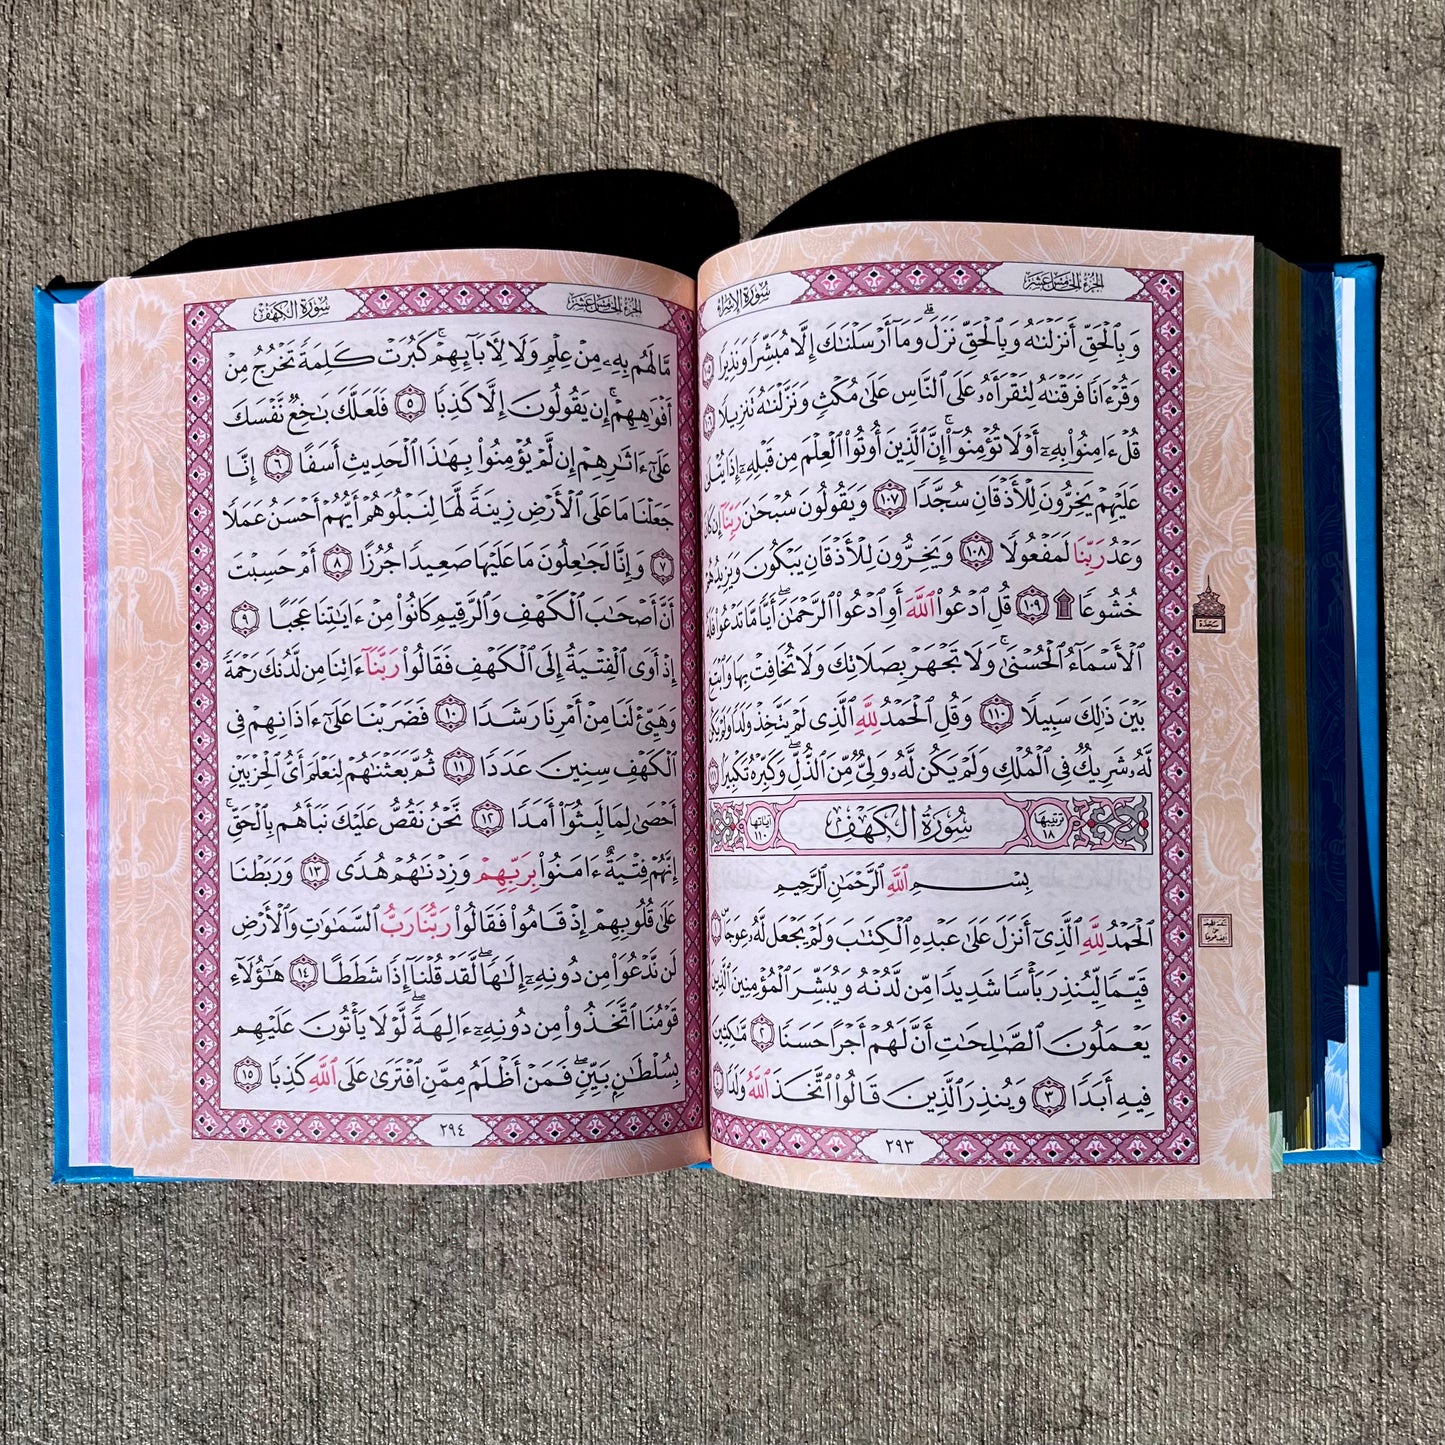 سُورَةُ الإِسْرَاء
الجُزْءُ الخَامِسَ عَشَرَ
وَبِٱلۡحَقِّ أَنزَلۡنَٰهُ وَبِٱلۡحَقِّ نَزَلَۗ وَمَآ أَرۡسَلۡنَٰكَ إِلَّا مُبَشِّرٗا وَنَذِيرٗا ١٠٥
وَقُرۡءَانٗا فَرَقۡنَٰهُ لِتَقۡرَأَهُۥ عَلَى ٱلنَّاسِ عَلَىٰ مُكۡثٖ وَنَزَّلۡنَٰهُ تَنزِيلٗا ١٠٦
قُلۡ ءَامِنُواْ بِهِۦٓ أَوۡ لَا تُؤۡمِنُوٓاْۚ إِنَّ ٱلَّذِينَ أُوتُواْ ٱلۡعِلۡمَ مِن قَبۡلِهِۦٓ إِذَا يُتۡلَىٰ
عَلَيۡهِمۡ يَخِرُّونَ لِلۡأَذۡقَانِۤ سُجَّدٗا ١٠٧ وَيَقُولُونَ سُبۡحَٰنَ رَبِّنَآ إِن كَانَ
وَعۡدُ رَبِّنَا لَمَفۡعُولٗا ١٠٨ وَيَخِرُّونَ لِلۡأَذۡقَانِ يَبۡكُونَ وَيَزِيدُهُمۡ
خُشُوعٗا۩ ١٠٩ قُلِ ٱدۡعُواْ ٱللَّهَ أَوِ ٱدۡعُواْ ٱلرَّحۡمَٰنَۖ أَيّٗا مَّا تَدۡعُواْ فَلَهُ
ٱلۡأَسۡمَآءُ ٱلۡحُسۡنَىٰۚ وَلَا تَجۡهَرۡ بِصَلَاتِكَ وَلَا تُخَافِتۡ بِهَا وَٱبۡتَغِ
بَيۡنَ ذَٰلِكَ سَبِيلٗا ١١٠ وَقُلِ ٱلۡحَمۡدُ لِلَّهِ ٱلَّذِي لَمۡ يَتَّخِذۡ وَلَدٗا وَلَمۡ يَكُن
لَّهُۥ شَرِيكٞ فِي ٱلۡمُلۡكِ وَلَمۡ يَكُن لَّهُۥ وَلِيّٞ مِّنَ ٱلذُّلِّۖ وَكَبِّرۡهُ تَكۡبِيرَۢا ١١١
ترتيبها ١٨ سُورَةُ الكَهْفِ آياتها ١١٠
بِسۡمِ ٱللَّهِ ٱلرَّحۡمَٰنِ ٱلرَّحِيمِ
ٱلۡحَمۡدُ لِلَّهِ ٱلَّذِيٓ أَنزَلَ عَلَىٰ عَبۡدِهِ ٱلۡكِتَٰبَ وَلَمۡ يَجۡعَل لَّهُۥ عِوَجَاۜ ١
قَيِّمٗا لِّيُنذِرَ بَأۡسٗا شَدِيدٗا مِّن لَّدُنۡهُ وَيُبَشِّرَ ٱلۡمُؤۡمِنِينَ ٱلَّذِينَ
يَعۡمَلُونَ ٱلصَّٰلِحَٰتِ أَنَّ لَهُمۡ أَجۡرًا حَسَنٗا ٢ مَّٰكِثِينَ
فِيهِ أَبَدٗا ٣ وَيُنذِرَ ٱلَّذِينَ قَالُواْ ٱتَّخَذَ ٱللَّهُ وَلَدٗا ٤
٢٩٣
سَجْدَة
الجُزْءُ الخَامِسَ عَشَرَ
سُورَةُ الكَهْفِ
مَّا لَهُم بِهِۦ مِنۡ عِلۡمٖ وَلَا لِأٓبَآئِهِمۡۚ كَبُرَتۡ كَلِمَةٗ تَخۡرُجُ مِنۡ
أَفۡوَٰهِهِمۡۚ إِن يَقُولُونَ إِلَّا كَذِبٗا ٥ فَلَعَلَّكَ بَٰخِعٞ نَّفۡسَكَ
عَلَىٰٓ ءَاثَٰرِهِمۡ إِن لَّمۡ يُؤۡمِنُواْ بِهَٰذَا ٱلۡحَدِيثِ أَسَفًا ٦ إِنَّا
جَعَلۡنَا مَا عَلَى ٱلۡأَرۡضِ زِينَةٗ لَّهَا لِنَبۡلُوَهُمۡ أَيُّهُمۡ أَحۡسَنُ عَمَلٗا
٧ وَإِنَّا لَجَٰعِلُونَ مَا عَلَيۡهَا صَعِيدٗا جُرُزًا ٨ أَمۡ حَسِبۡتَ
أَنَّ أَصۡحَٰبَ ٱلۡكَهۡفِ وَٱلرَّقِيمِ كَانُواْ مِنۡ ءَايَٰتِنَا عَجَبًا ٩
إِذۡ أَوَى ٱلۡفِتۡيَةُ إِلَى ٱلۡكَهۡفِ فَقَالُواْ رَبَّنَآ ءَاتِنَا مِن لَّدُنكَ رَحۡمَةٗ
وَهَيِّئۡ لَنَا مِنۡ أَمۡرِنَا رَشَدٗا ١٠ فَضَرَبۡنَا عَلَىٰٓ ءَاذَانِهِمۡ فِي
ٱلۡكَهۡفِ سِنِينَ عَدَدٗا ١١ ثُمَّ بَعَثۡنَٰهُمۡ لِنَعۡلَمَ أَيُّ ٱلۡحِزۡبَيۡنِ
أَحۡصَىٰ لِمَا لَبِثُوٓاْ أَمَدٗا ١٢ نَّحۡنُ نَقُصُّ عَلَيۡكَ نَبَأَهُم بِٱلۡحَقِّۚ
إِنَّهُمۡ فِتۡيَةٌ ءَامَنُواْ بِرَبِّهِمۡ وَزِدۡنَٰهُمۡ هُدٗى ١٣ وَرَبَطۡنَا
عَلَىٰ قُلُوبِهِمۡ إِذۡ قَامُواْ فَقَالُواْ رَبُّنَا رَبُّ ٱلسَّمَٰوَٰتِ وَٱلۡأَرۡضِ
لَن نَّدۡعُوَاْ مِن دُونِهِۦٓ إِلَٰهٗاۖ لَّقَدۡ قُلۡنَآ إِذٗا شَطَطًا ١٤ هَٰٓؤُلَآءِ
قَوۡمُنَا ٱتَّخَذُواْ مِن دُونِهِۦٓ ءَالِهَةٗۖ لَّوۡلَا يَأۡتُونَ عَلَيۡهِم
بِسُلۡطَٰنِۭ بَيِّنٖۖ فَمَنۡ أَظۡلَمُ مِمَّنِ ٱفۡتَرَىٰ عَلَى ٱللَّهِ كَذِبٗا ١٥
٢٩٤